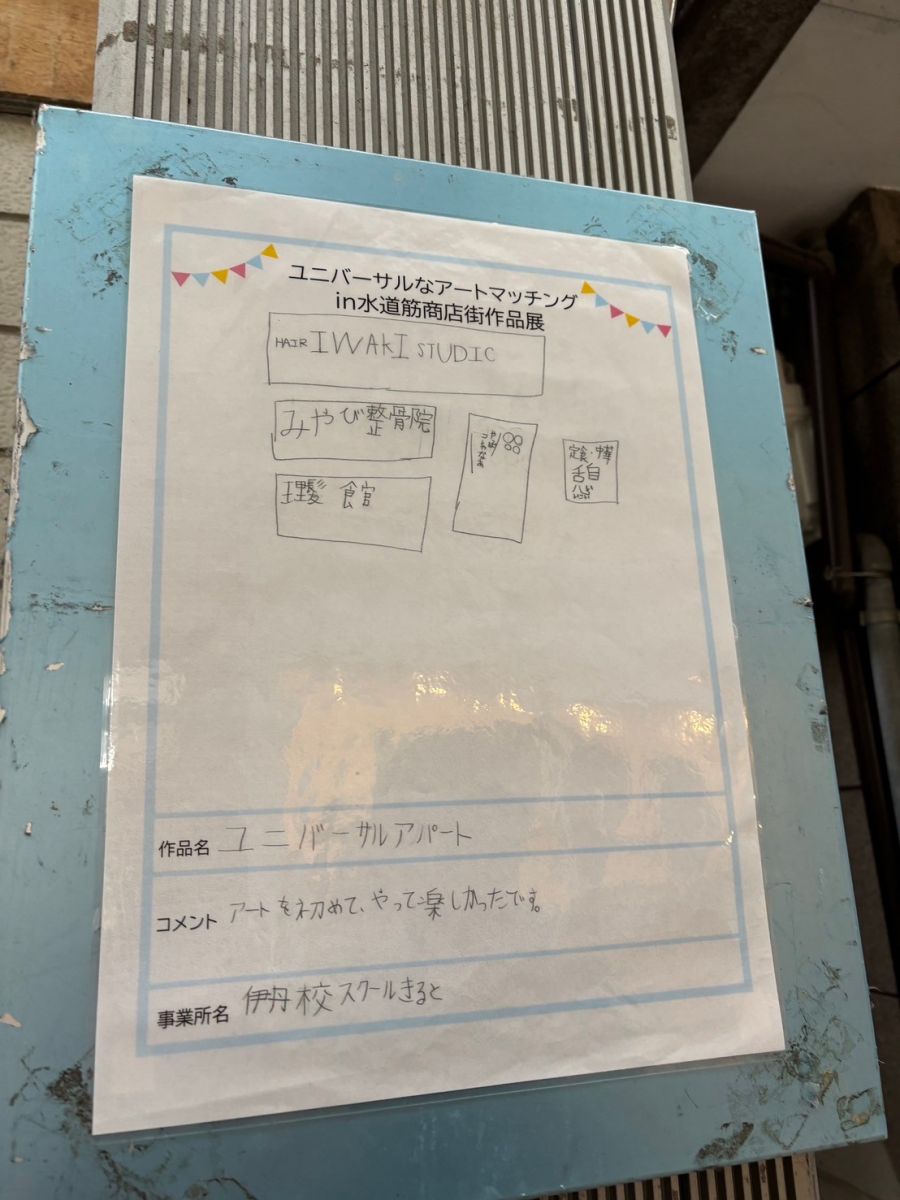 ユニバーサルなアートマッチング
in水道筋商店街作品展
HAIR IWAKI STUDIC
みやび整骨院
理髪 食官
定食・中華
作品名 ユニバーサルアパート
コメント アートを初めて、やって楽しかったです。
事業所名 伊丹校スクールきると